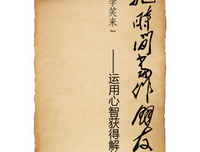 把时间当作朋友
——运用心智获得解
笑来』